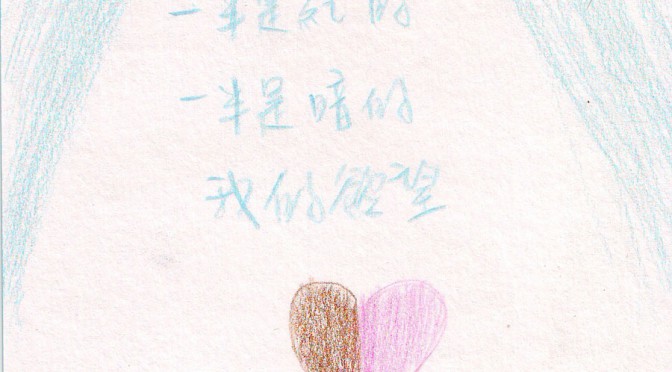 一半是 的
一半是暗的
我的慾望